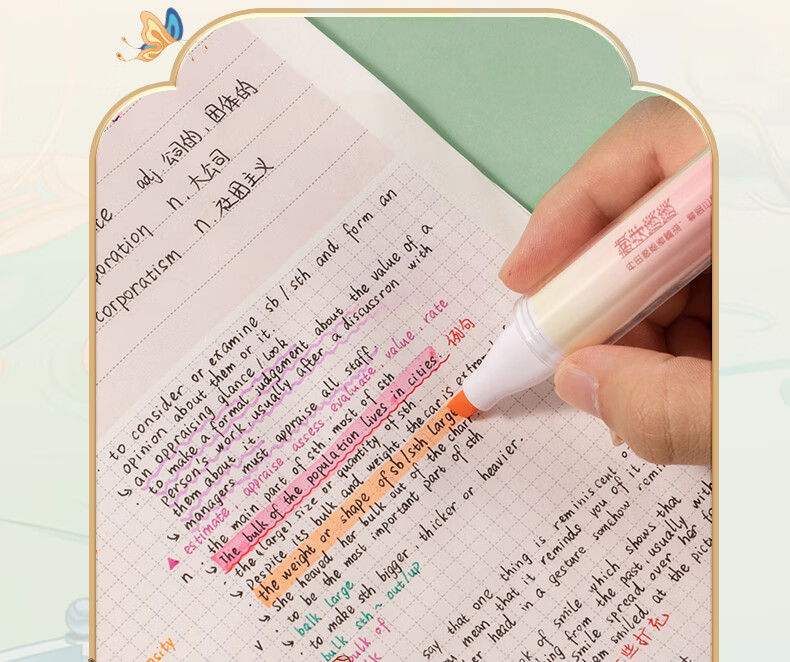 adj 公司的，团体的
poration n. 大公司
corporatism n. 社团主义
to consider or examine sb / sth and form an
opinion about them or it
an appraising glance / look
to make a formal judgement about the value of a
person's work, usually after a discussion with
them about it
managers must appraise all staff
estimate appraise assess evaluate value, rate
n. the main part of sth most of sth
The bulk of the population lives in cities. 例句
the (large) size or quantity of sth
Despite its bulk and weight the car is extre
the weight or shape of sb/sth large
She heaved her bulk out of the chair
to be the most important part of sth
v to make sth bigger, thicker or heavier.
balk large
bulk sth ~ out/up
bulk of
say that one thing is reminiscent o
mean that it reminds you of it
er head in a gesture somehow remini
of smile which shows that
ing from the past usually with
smile spread over her fa
am smiled at the pict
些扩充
nsity